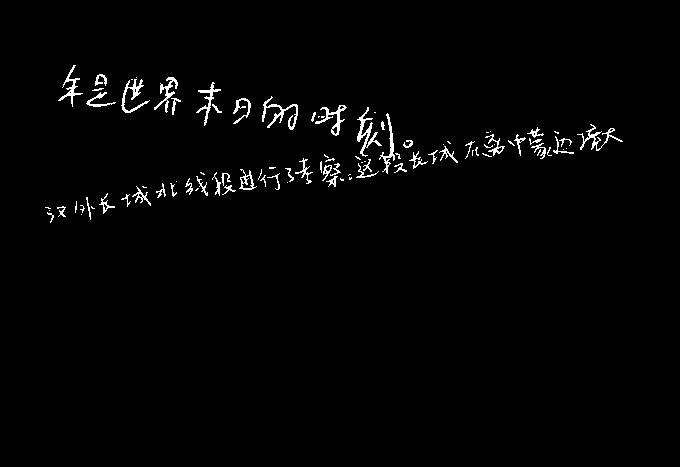 年是世界末日的时刻。
汉外长城北线段进行了考察。这段长城在离中蒙边境大